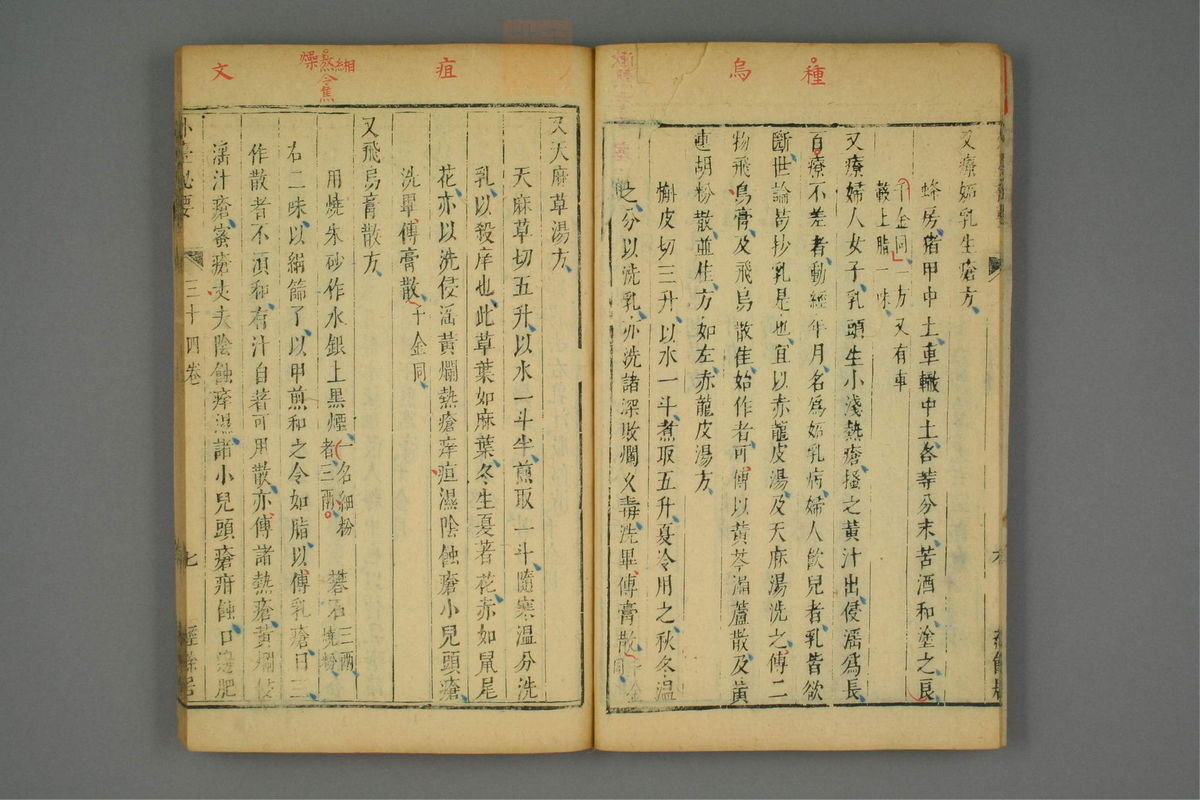 種
烏
又療妬乳生瘡方
蜂房猪甲中土車轍中土各等分末苦酒和塗之良
千金同一方又有車
轂上脂一味
又療婦人女子乳頭生小淺熱瘡搔之黃汁出侵淫爲長
百療不差者動經年月名爲妬乳病婦人飲兒者乳皆欲
斷世論苟抄乳是也宜以赤龍皮湯及天麻湯洗之傅二
物飛烏膏及飛烏散佳始作者可傅以黃芩漏蘆散及黃
連胡粉散並佳方如左赤龍皮湯方
槲皮切三升以水一斗煮取五升夏冷用之秋冬温
之分以洗乳亦洗諸深敗爛久毒洗畢傅膏散千金
同
疽
緗
熬
燥
文
又天麻草湯方
天麻草切五升以水一斗半煎取一斗隨寒温分洗
乳以殺庠也此草葉如麻葉冬生夏著花赤如鼠尾
花亦以洗侵淫黃爛熱瘡痒疽濕陰蝕瘡小兒頭瘡
洗畢傅膏散千金同
又飛烏膏散方
用燒朱砂作水銀上黑煙一名細粉
者三兩礬石三兩
燒粉
右二味以絹篩了以甲煎和之令如脂以傅乳瘡日三
作散者不須和有汁自著可用散亦傅諸熱瘡黃爛侵
淫汁瘡蜜瘡丈夫陰蝕痒濕諸小兒頭瘡疳蝕口邊肥
三十四卷
七
經餘居